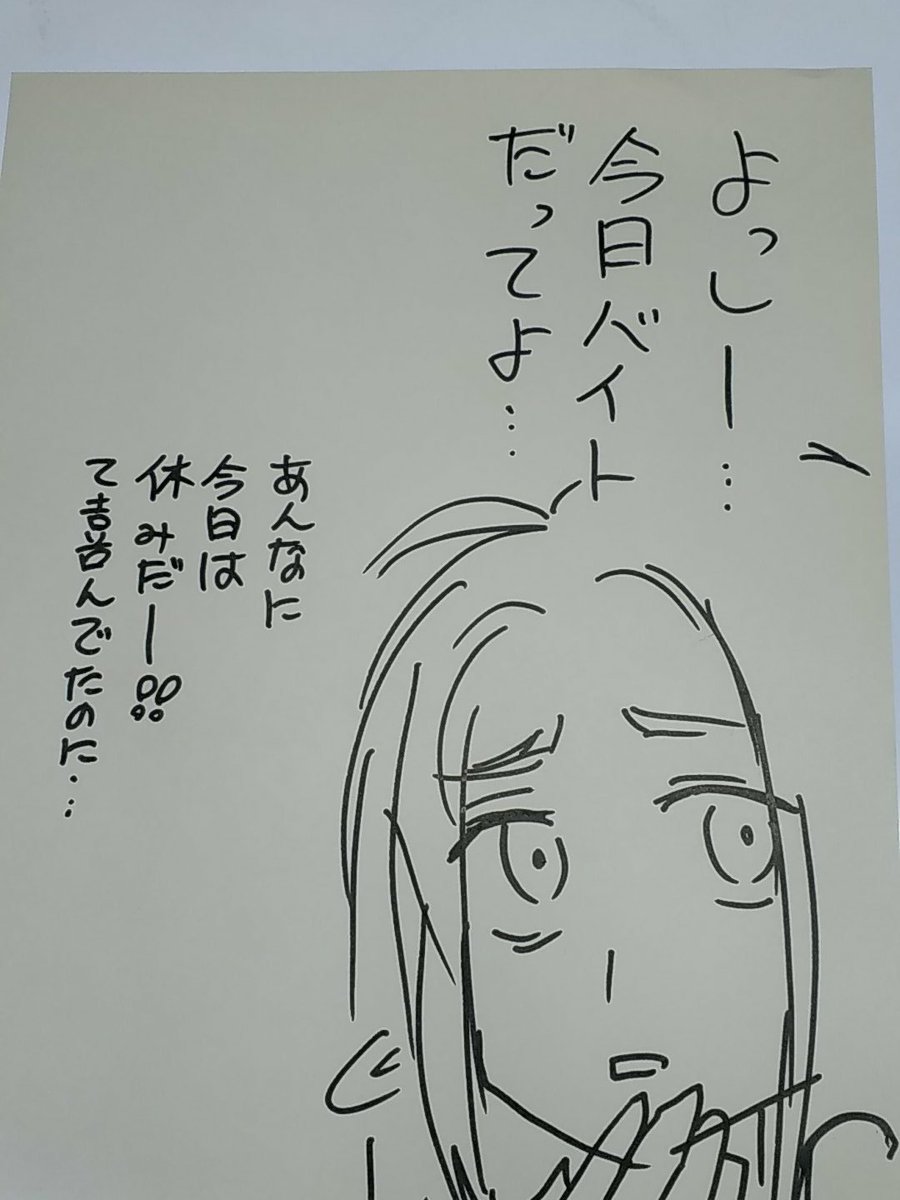 よっしー…
今日バイト
だってよ…
あんなに
今日は
休みだー!!
て喜んでたのに…